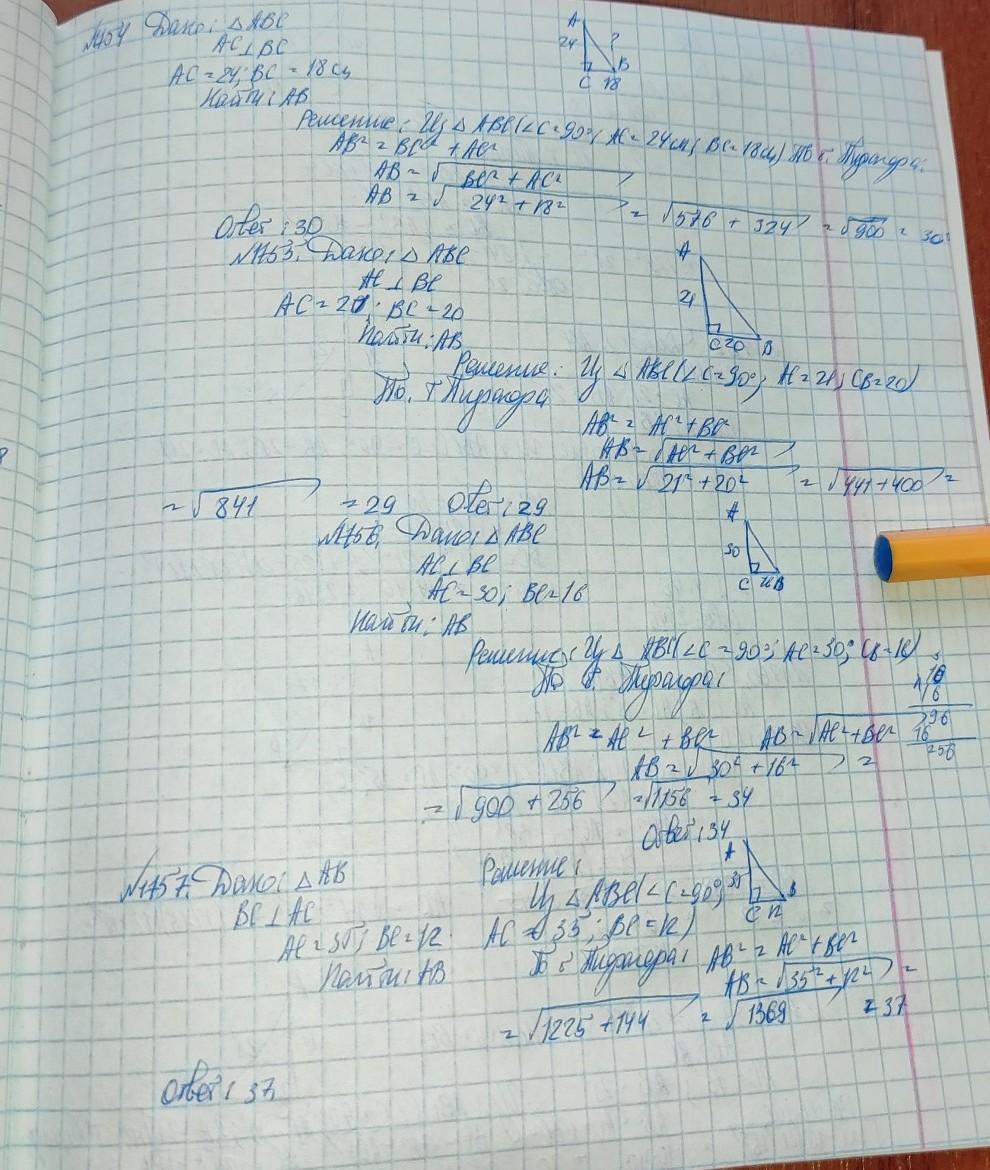 №1454 Дано: △ABC
AC⊥BC
AC = 24; BC = 18 см
Найти: AB
A
24
?
B
C 18
Решение: Из △ ABC(∠C=90°; AC = 24 см; BC=18см) По т. Пифагора:
AB² = BC² + AC²
AB = √BC² + AC²
AB = √24² + 18² = √576 + 324 = √900 = 30
Ответ: 30
Дано: △ ABC
AC ⊥ BC
AC = 21; BC = 20
Найти: AB
A
21
C 20 B
Решение: Из △ ABC(∠C=90°; AC=21; CB=20)
По. т Пифагора
AB² = AC² + BC²
AB = √AC² + BC²
AB = √21² + 20² = √441+400 =
= √841 = 29 Ответ: 29
№1456. Дано: △ABC
AC⊥BC
AC = 30; BC = 16
Найти: AB
A
30
C 16 B
Решение: Из △ ABC(∠C = 90°; AC=30; CB=16)
По т. Пифагора:
16
16
96
16
256
AB² = AC² + BC² AB = √AC²+BC²
AB = √30² + 16² =
= √900 + 256 = √1156 = 34
Ответ: 34
№1457. Дано: △AB
BC ⊥ AC
AC = 35; BC=12
Найти: AB
A
35
B
C 12
Решение:
Из △ ABC(∠C=90°;
AC = 35; BC = 12)
По т Пифагора: AB² = AC² + BC²
AB = √35² + 12² =
= √1225 + 144 = √1369 = 37
Ответ: 37